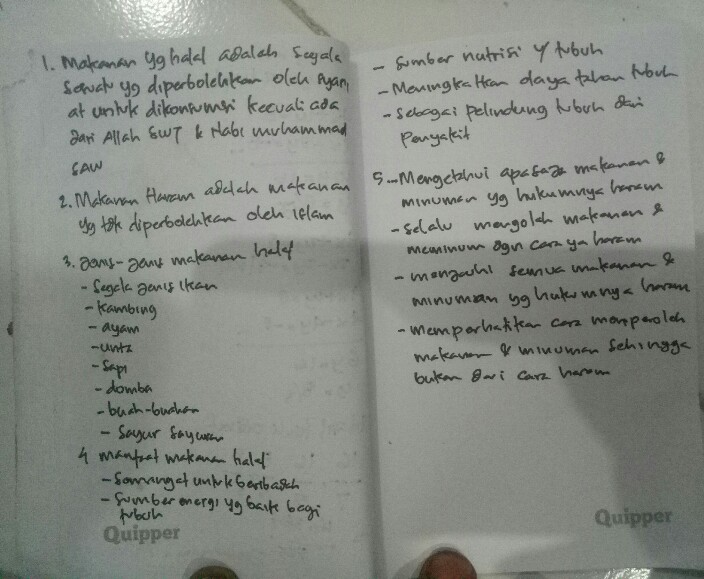 1. Makanan yg halal adalah segala
sesuatu yg diperbolehkan oleh syari
at untuk dikonsumsi kecuali ada
dari Allah SWT & Nabi Muhammad
SAW
2. Makanan Haram adalah makanan
yg tdk diperbolehkan oleh islam
3. Jenis-Jenis makanan halal
- Segala jenis ikan
- Kambing
- ayam
- unta
- Sapi
- domba
- buah-buahan
- Sayur Sayuran
4 manfaat makanan halal
- Semangat untuk beribadah
- Sumber energi yg baik bagi
tubuh
Quipper
- Sumber nutrisi y/ tubuh
- Meningkatkan daya tahan tubuh
- Sebagai pelindung tubuh dari
Penyakit
5. - Mengetahui apa saja makanan &
minuman yg hukumnya haram
- selalu mengolah makanan &
meminum dgn cara ya haram
- menjauhi semua makanan &
minuman yg hukumnya haram
- memperhatikan cara memperoleh
makanan & minuman sehingga
bukan dari cara haram
Quipper